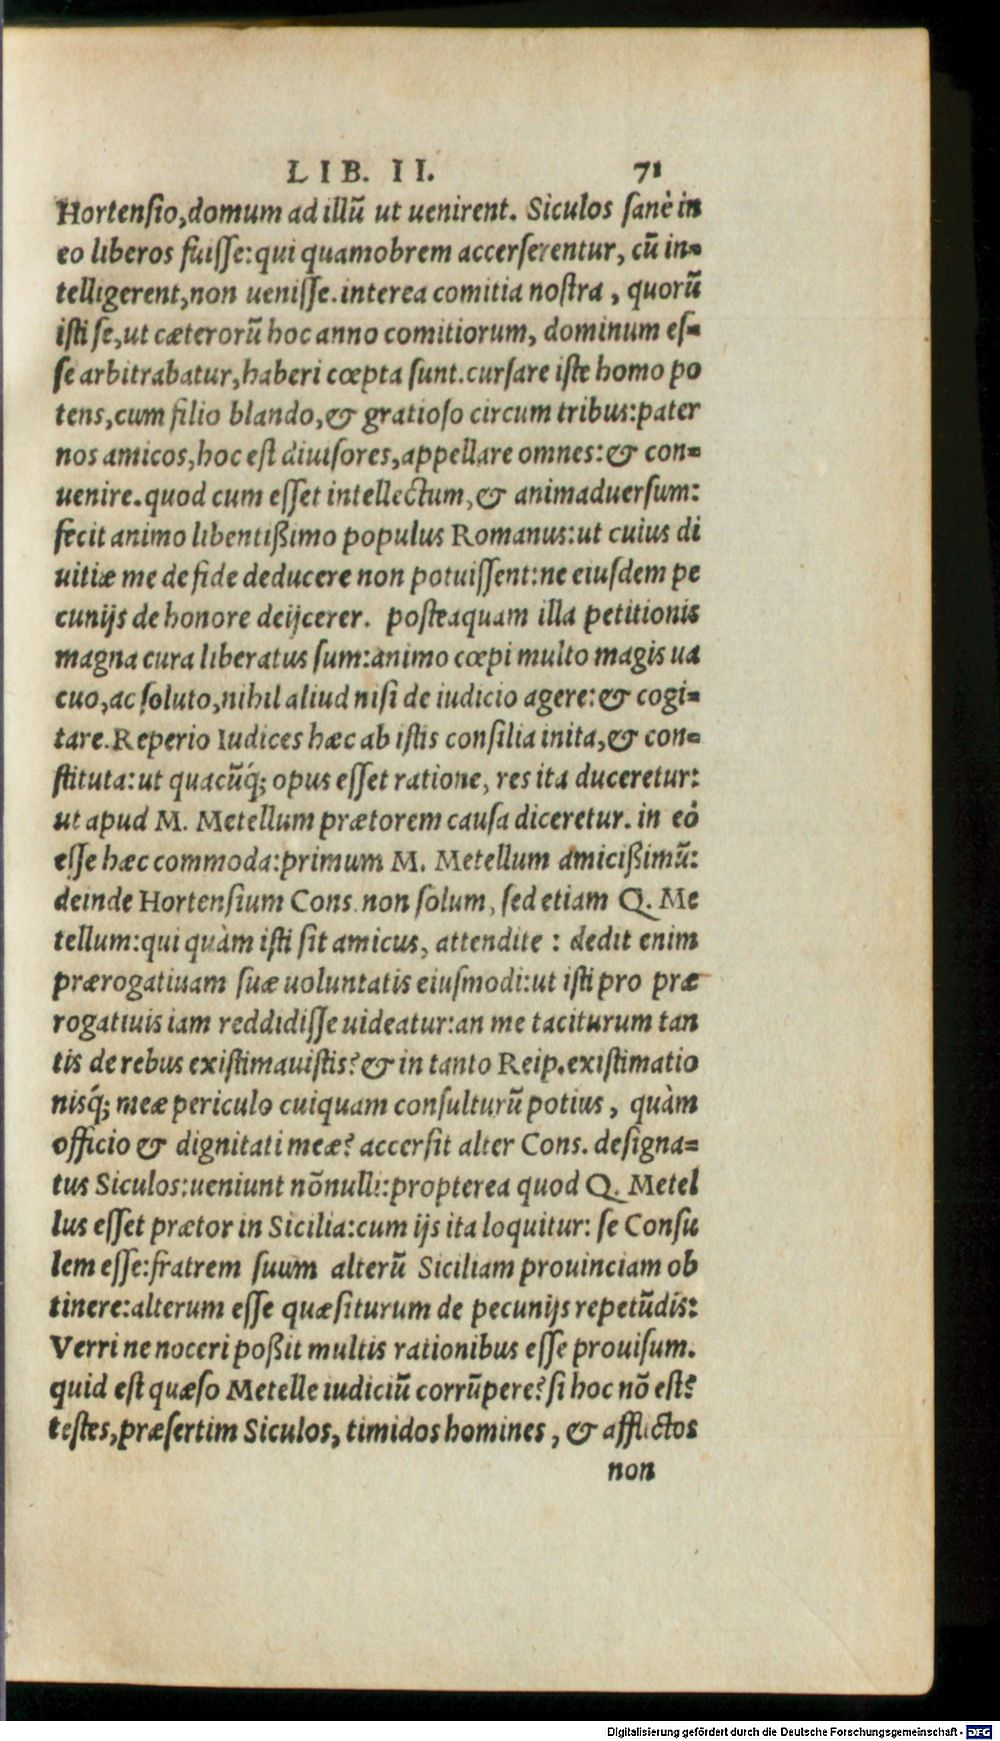 LIB. II. 71
Hortensio,domum ad illũ ut uenirent. Siculos sanè in
eo liberos fuisse:qui quamobrem accerserentur, cũ in-
telligerent,non uenisse.interea comitia nostra, quorũ
isti se,ut cæterorũ hoc anno comitiorum, dominum es-
se arbitrabatur,haberi cœpta sunt.cursare iste homo po
tens,cum filio blando,& gratioso circum tribus:pater
nos amicos,hoc est diuisores,appellare omnes:& con-
uenire.quod cum esset intellectum,& animaduersum:
fecit animo libentißimo populus Romanus:ut cuius di
uitiæ me de fide deducere non potuissent:ne eiusdem pe
cunijs de honore deijcerer. posteaquam illa petitionis
magna cura liberatus sum:animo cœpi multo magis ua
cuo,ac soluto,nihil aliud nisi de iudicio agere:& cogi-
tare.Reperio Iudices hæc ab istis consilia inita,& con-
stituta:ut quacũq́; opus esset ratione, res ita duceretur:
ut apud M. Metellum prætorem causa diceretur. in eo
esse hæc commoda:primum M. Metellum amicißimũ:
deinde Hortensium Cons. non solum, sed etiam Q. Me
tellum:qui quàm isti sit amicus, attendite : dedit enim
prærogatiuam suæ uoluntatis eiusmodi:ut isti pro præ
rogatiuis iam reddidisse uideatur:an me taciturum tan
tis de rebus existimauistis?& in tanto Reip.existimatio
nisq́; meæ periculo cuiquam consulturũ potius, quàm
officio & dignitati meæ? accersit alter Cons. designa-
tus Siculos:ueniunt nõnulli:propterea quod Q. Metel
lus esset prætor in Sicilia:cum ijs ita loquitur: se Consu
lem esse:fratrem suum alterũ Siciliam prouinciam ob
tinere:alterum esse quæsiturum de pecunijs repetũdis:
Verri ne noceri poßit multis rationibus esse prouisum.
quid est quæso Metelle iudiciũ corrũpere?si hoc nõ est?
testes,præsertim Siculos, timidos homines, & afflictos
non
Digitalisierung gefördert durch die Deutsche Forschungsgemeinschaft - DFG